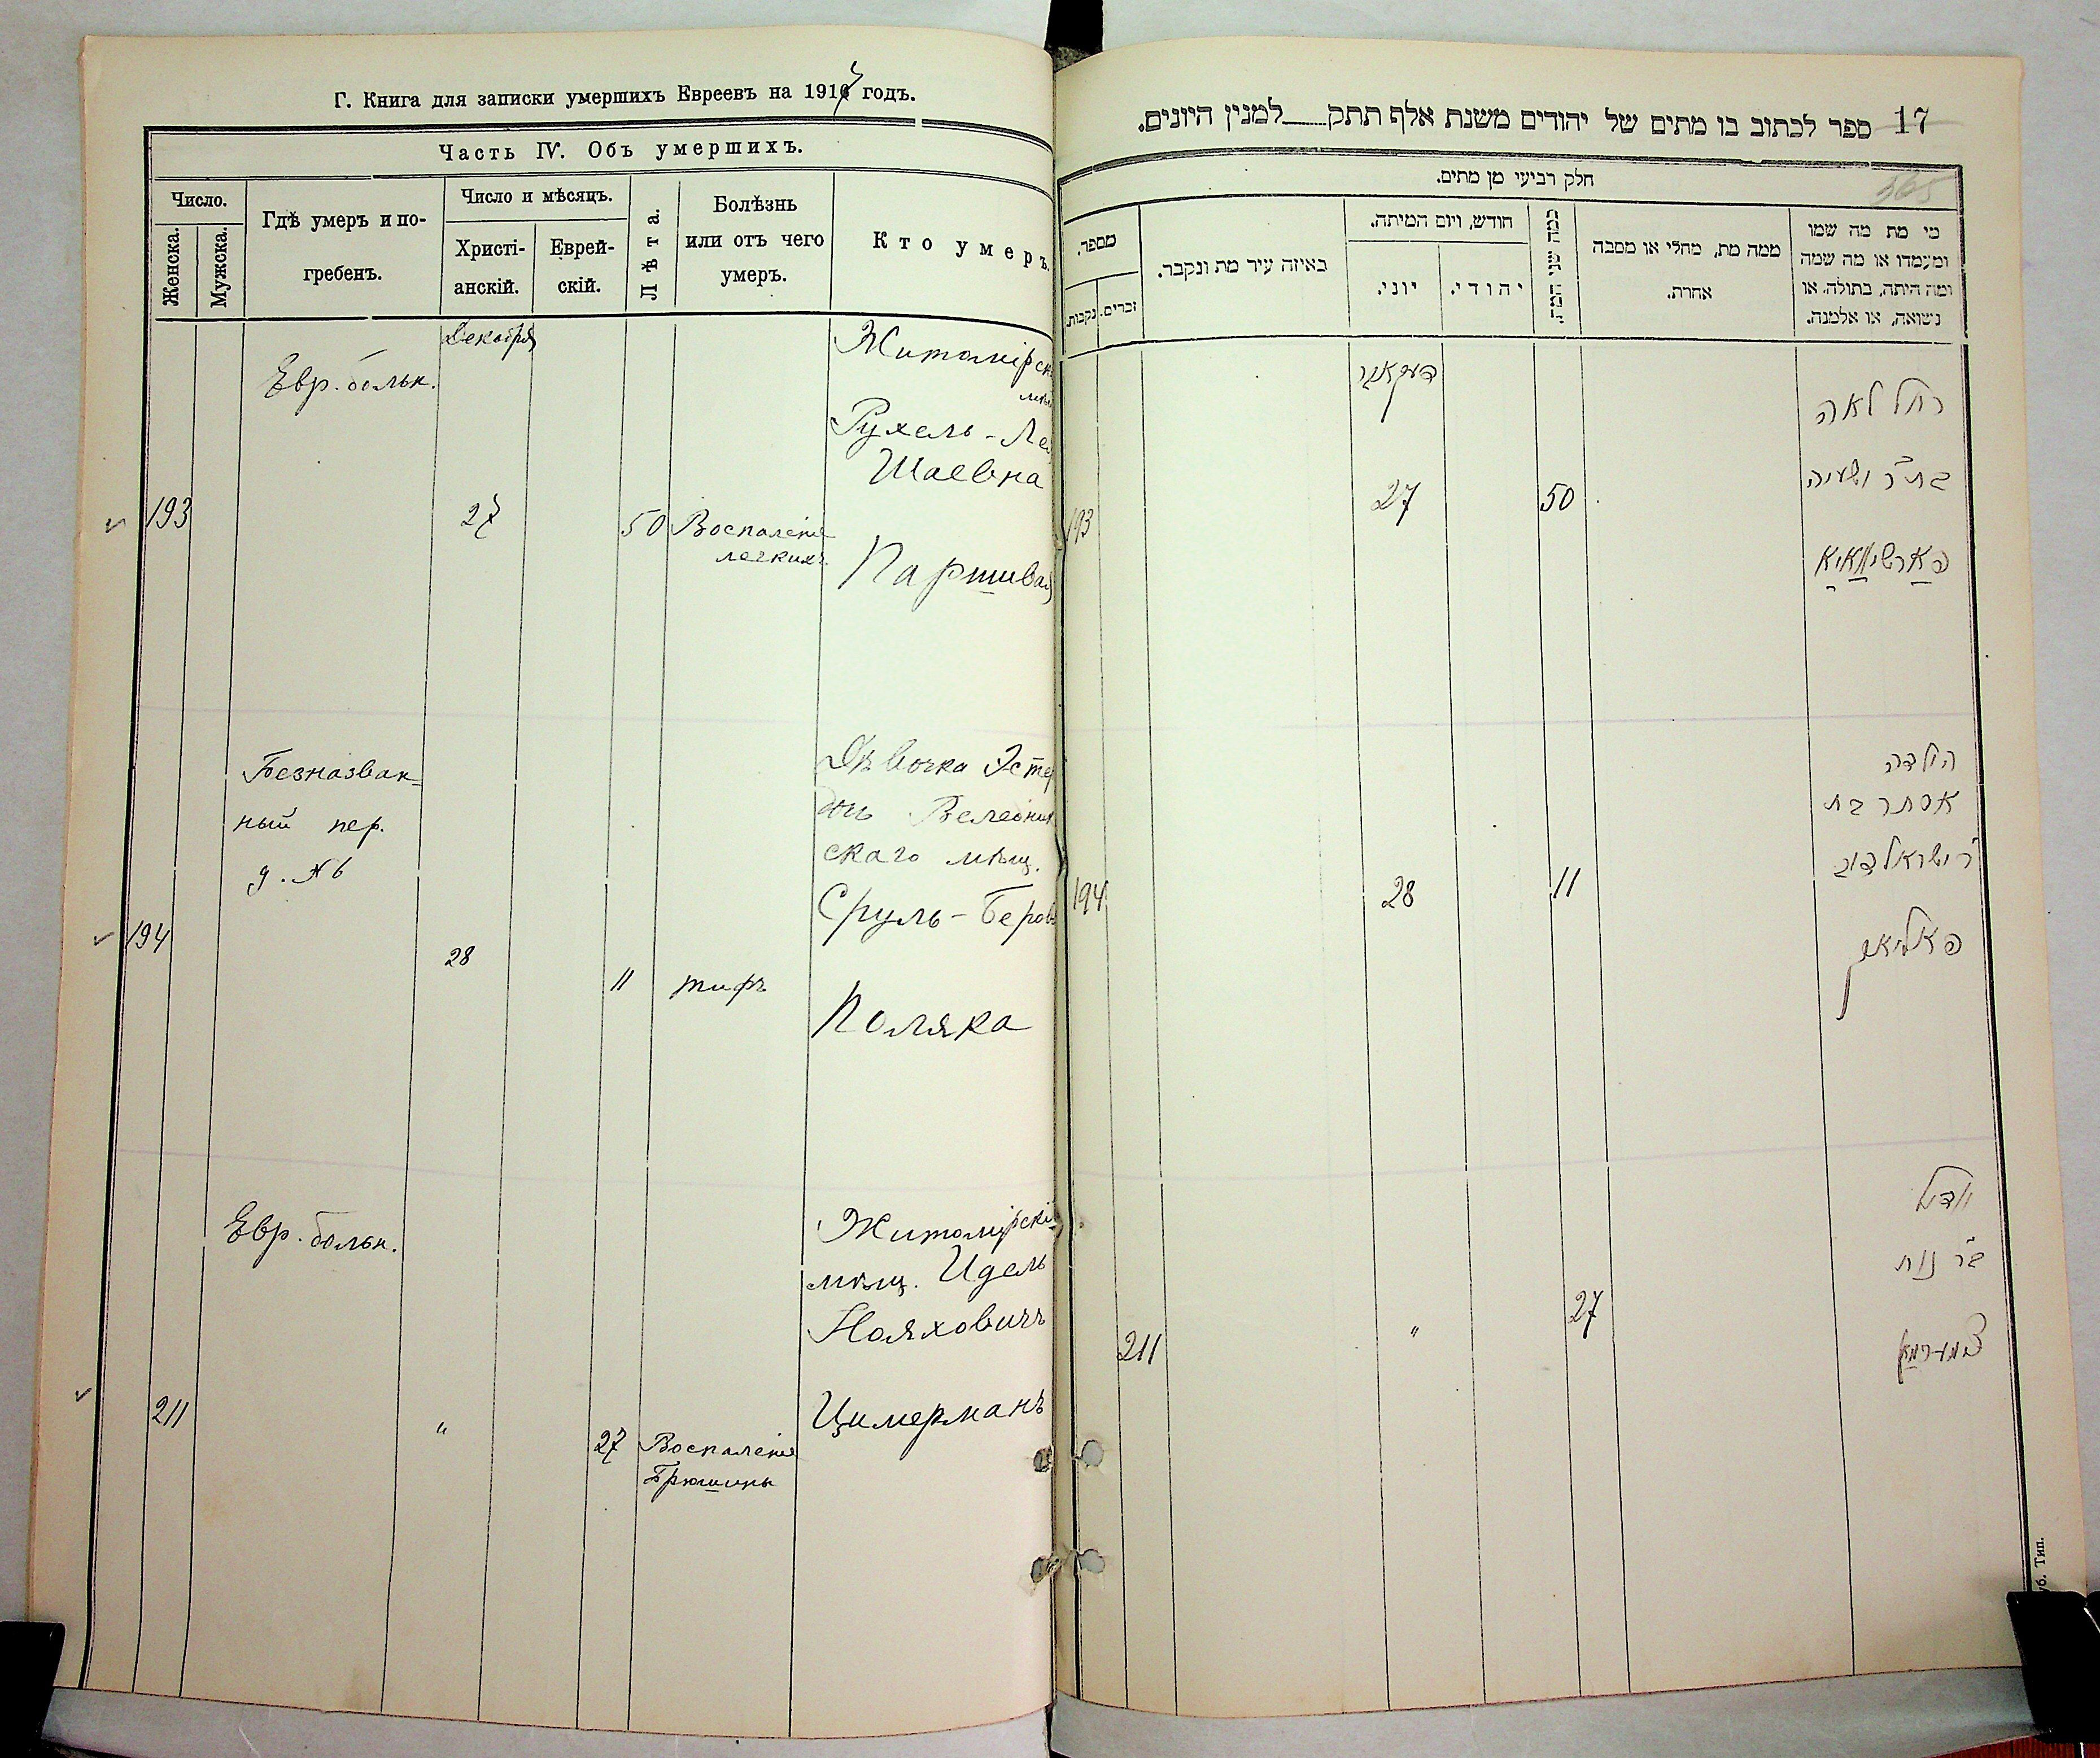 Г. Книга для записки умершихъ Евреевъ на 1917 годъ.
Часть IV. Объ умершихъ.
Число.
Женска.
Мужска.
Гдѣ умеръ и по-
гребенъ.
Число и мѣсяцъ.
Христі-
анскій.
Еврей-
скій.
Лѣта.
Болѣзнь
или отъ чего
умеръ.
Кто умеръ.
Декабря
193
Евр. больн.
27
50
Воспаленіе
легкихъ
Житомірск
мѣщ
Рухель-Лея
Шаевна
Паршивая
194
Безназван-
ный пер.
д. №6
28
11
тифъ
Дѣвочка Эстер
дочь Велединк
скаго мѣщ.
Сруль-Беров
Поляка
211
Евр. больн.
"
27
Воспаленіе
Брюшины
Житомірскій
мѣщ. Идель
Нояховичъ
Цимерманъ
17
ספר לכתוב בו מתים של יהודים משנת אלף תתק למנין היונים.
חלק רביעי מן מתים.
מי מת מה שמו
ומעמדו או מה שמה
ומה היתה, בתולה, או
נשואה, או אלמנה.
ממה מת, מחלי או מסבה
אחרת.
כמה שני המת.
חודש, ויום המיתה.
יהודי.
יוני.
באיזה עיר מת ונקבר.
מספר.
זכרים.
נקבות.
רחל לאה
בת ר' ישעיה
פארשיוואיא
50
דעקאבר
27
193
הילדה
אסתר בת
ר' ישראל דוב
פאליאק
11
28
194
יודיל
ב"ר נוח
צימערמאן
27
"
211
уб. Тип.